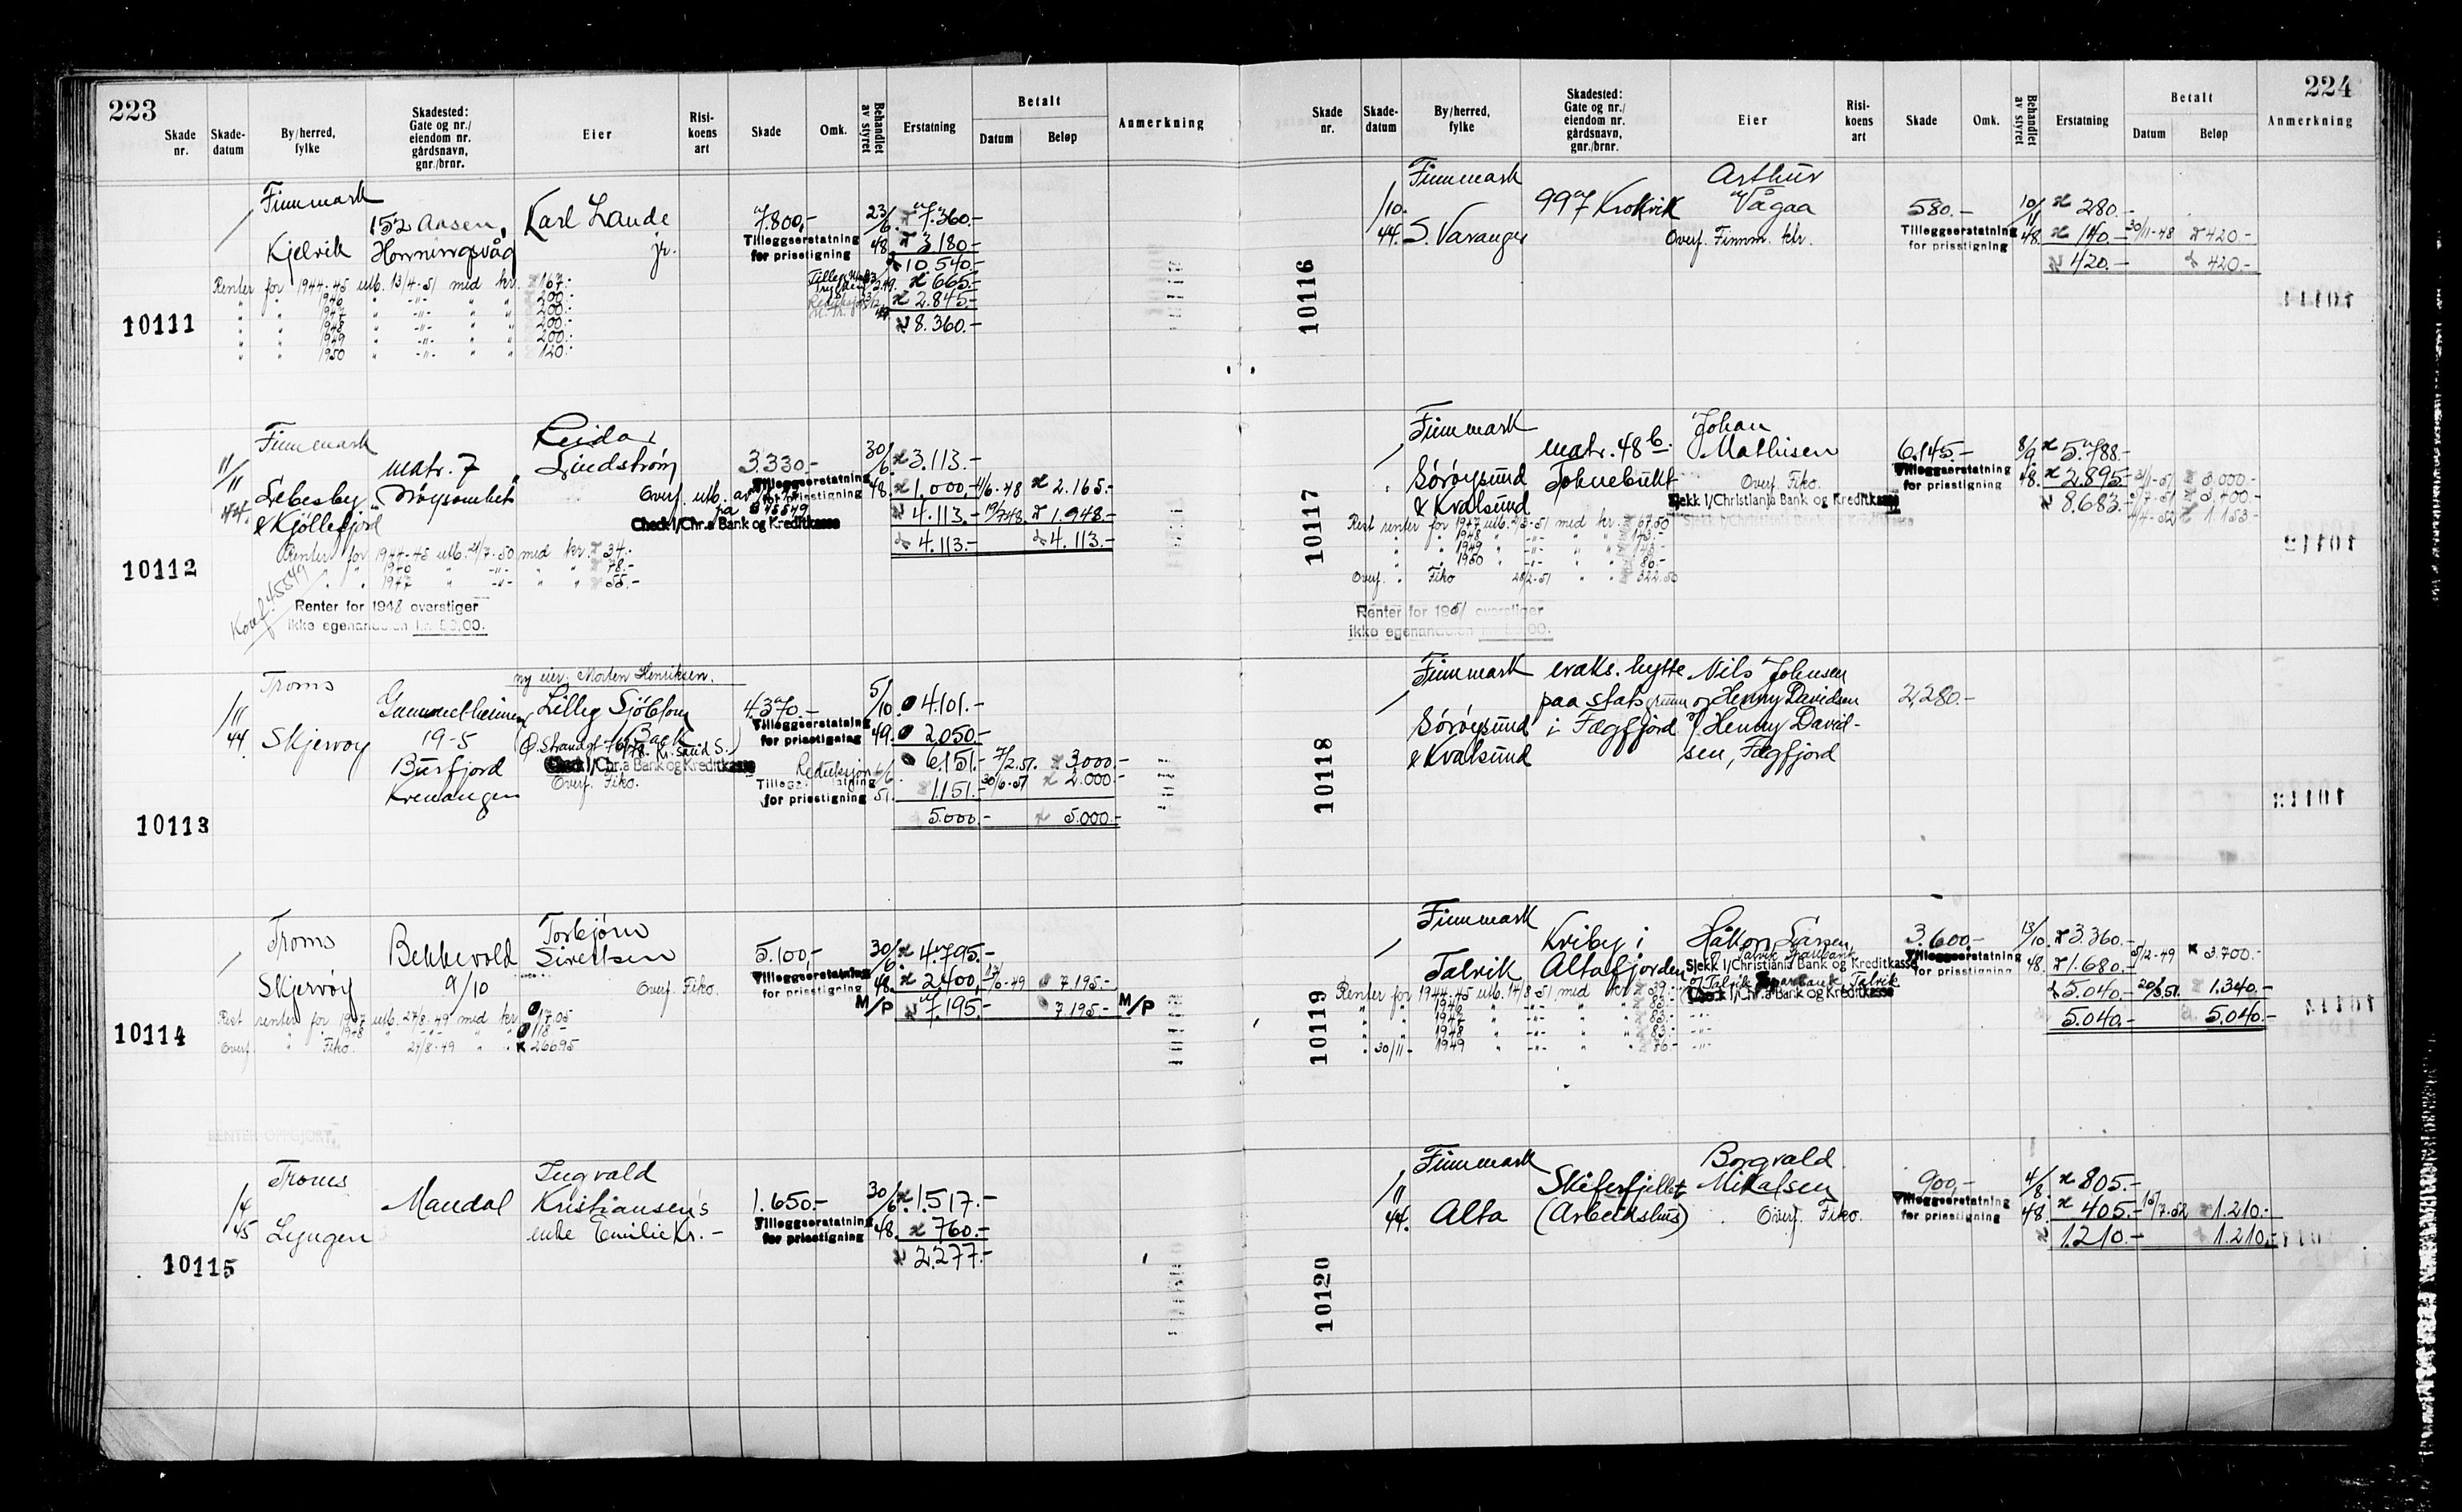 223
Skade nr. Skade-datum By/herred, fylke Skadested: Gate og nr./ eiendom nr. gårdsnavn, gnr./brnr. Eier Risi-koens art Skade Omk. Behandlet av styret Erstatning Betalt Datum Beløp Anmerkning
Finnmark
152 Aasen, Karl Lande 7.800,- 23/6 7.360.-
Kjelvik Honningsvåg jr. Tilleggserstatning for prisstigning 48. 3.180.-
10.540.-
665.-
2.845.-
8.360.-
Renter for 1944-45 utb. 13/4-51 med kr. 167.-
" " 1946 " -"- " " 200.-
" " 1947 " -"- " " 200.-
" " 1948 " -"- " " 200.-
" " 1949 " -"- " " 200.-
" " 1950 " -"- " " 120.-
10111
Finnmark Reidar
11/11 44. matr. 7 Lindstrøm 3.330.- 30/6 3.113.-
Lebesby Overf. utb. av Tilleggserstatning for prisstigning 48. 1.000,- 11/6-48 2.165.-
& Kjøllefjord på 45549 4.113.- 19/7 48. 1.948.-
Check I/Chr.a Bank og Kreditkasse
4.113.- 4.113.-
Renter for 1944-45 utb. 21/7-50 med kr. 34.-
" " 1946 -"- " " 78.-
" " 1947 " -"- " " 55.-
10112
Konf. 45549
Renter for 1948 overstiger
ikke egenandelen kr. 50,00.
ny eier: Morten Henriksen.
Troms Lilly 4.370.- 5/10 4.101.-
/11 44 Skjervøy 19-5 Tilleggserstatning for prisstigning 49. 2.050.-
Burfjord Check I/Chr.a Bank og Kreditkasse 6.151.- 7/2.51. 3000.-
Kvenangen Overf. Fiko. Reduksjon 6/6 51. Tilleggserstatning for prisstigning 1.151.- 30/6-51 2.000.-
5.000.- 5.000.-
10113
Troms Bekkevold Torbjørn
Sivertsen 5.100,- 30/6 4.795.-
Skjervøy 9/10 Overf. Fiko. Tilleggserstatning for prisstigning 48. 2400,- 17/6-49 7.195.-
M/P 7.195.- 7.195.- M/P
Rest renter for 1947 utb. 27/8-49 med kr. 17.05
" " 1948 " -"- " " 118.-
Overf. " Fiko. 27/8-49 " " 26695
10114
RENTER OPPGJORT
Troms Ingvald
/4 45 Mandal Kristiansen's 1.650.- 30/6 1.517.-
Lyngen enke Emilie Kr. - Tilleggserstatning for prisstigning 48. 760.-
2.277.-
10115
224
Skade nr. Skade-datum By/herred, fylke Skadested: Gate og nr./ eiendom nr. gårdsnavn, gnr./brnr. Eier Risi-koens art Skade Omk. Behandlet av styret Erstatning Betalt Datum Beløp Anmerkning
Finnmark Arthur
/10. 44. 997 Krokvik Vågaa 580.- 10/11 280.-
S. Varanger Overf. Finnm. Tilleggserstatning for prisstigning 48. 140.- 30/11-48 420.-
420.- 420.-
10116
Finnmark Johan
matr. 48 b. Mathisen 6.145.- 8/9 5.788.-
Sørøysund Overf. Fiko. Tilleggserstatning for prisstigning 48. 2.895.- 3.000.-
& Kvalsund Sjekk I/Christiania Bank og Kreditkasse 8.683.- 1.153.-
Rest renter for 1947 utb. 2/3-51 med kr. 67.50
" " 1948 " -"- " " 143.-
" " 1949 " -"- " " 143.-
" " 1950 " -"- " " 80.-
Overf. " Fiko 28/2-51 " " 322.50
10117
Renter for 1951 overstiger
ikke egenandelen kr. 50,00.
Finnmark evaks. hytte Nils Johnsen
paa stats grunn og Henny Davidsen 2,280.-
Sørøysund i Fægfjord Henny David-
& Kvalsund sen, Fægfjord
10118
Finnmark Kviby i Håkon Larsen, 3.600.- 13/10 3.360.-
Talvik Altafjorden Sjekk I/Christiania Bank og Kreditkasse Tilleggserstatning for prisstigning 48. 1.680.- 5/2-49 3.700.-
Talvik Sparebank Talvik 5.040.- 20/3 51. 1.340.-
Check I/Chr.a Bank og Kreditkasse 5.040.- 5.040.-
Renter for 1944-45 utb. 14/8-51 med kr. 39.-
" " 1946 " -"- " " 83.- -"-
" " 1947 " -"- " " 83.- -"-
" " 1948 " -"- " " 83.- -"-
" 30/11- 1949 " -"- " " 76.- -"-
10119
Finnmark Borgvald
/11 44. Skiferfjellet Mikalsen 900,- 4/8. 805.-
Alta (Arbeidshus) Overf. Fiko. Tilleggserstatning for prisstigning 48. 405.- 15/7-52 1.210.-
1.210.- 1.210.-
10120